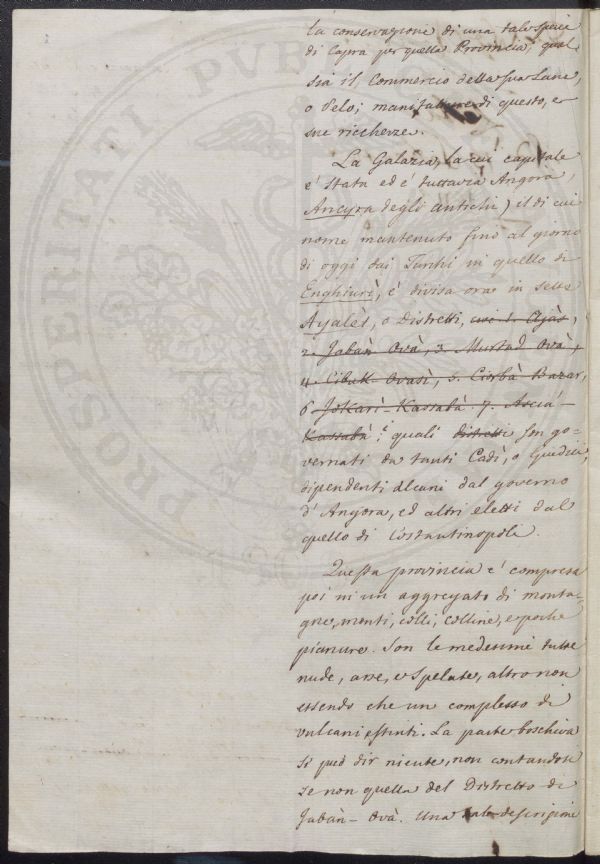 la conservazione di una tale specie
di Capra per quella Provincia, qual
sia il Commercio della sua Lana,
o Pelo; manifatture di questo, e
sue ricchezze.
La Galazia, la cui capitale
e' stata ed e' tuttavia Angora,
Ancyra degli antichi) il di cui
nome mantenuto fino al giorno
di oggi dai Turchi in quello di
Enghiurì, e' divisa ora in sette
Ayalès, o Distretti, cioè 1. Ajàs,
2. Jabàn Ovà, 3. Murtad Ovà,
4. Cibuk Ovasì, 5. Ciorbà Bazar,
6 Jokarì-Kassabà 7. Asciá-
Kassabà i quali distretti son go-
vernati da tanti Cadì, o Giudici,
dipendenti alcuni dal governo
d'Angora, ed altri eletti dal
quello di Costantinopoli.
Questa provincia e' compresa
poi in un aggregato di monta-
gne, monti, colli, colline, e poche
pianure. Son le medesime tutte
nude, arse, e spelate, altro non
essendo che un complesso di
vulcani estinti. La parte boschiva
si può dir niente, non contandosi
se non quella del Distretto di
Jabàn-Ovà. Una tale descrizione
PROSPERITATI PUB